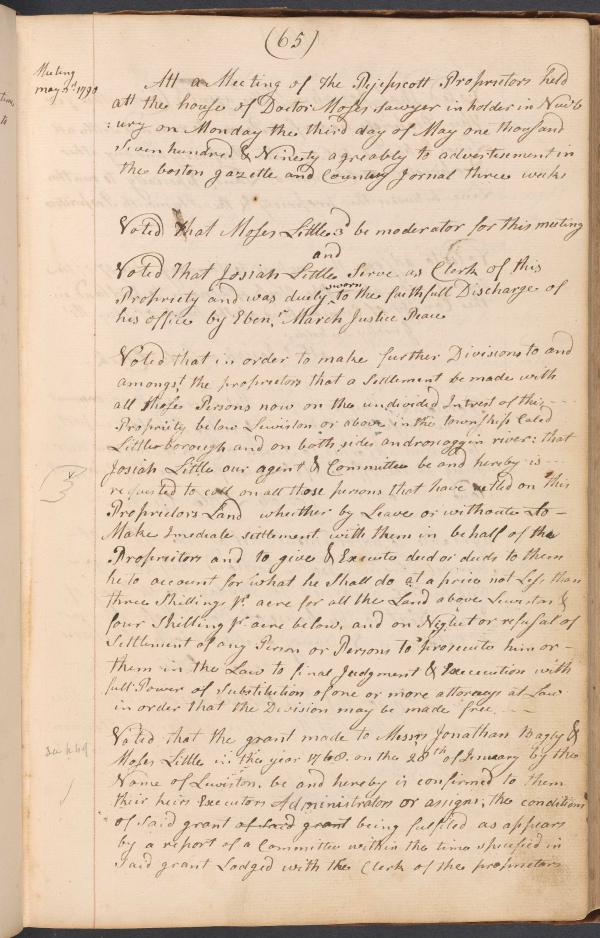 (65)
Meeting
may 3d. 1790
Att a Meeting of the Pejepscott Proprietors held
att the house of Doctor Moses Sawyer in holder in Newb
:ury on Monday the third day of May one thousand
Seven hundred & Ninety agreably to advertisement in
the boston gazette and Country Jornal three weeks
Voted that Moses Little 3d be moderator for this meeting
and
Voted That Josiah Little Serve as Clerk of this
Propriety and was duely sworn to the faithfull Discharge of
his office by Ebenr. March Justice Peace
Voted that in order to make further Divisions to and
amongst the proprietors that a Settlement be made with
all those Persons now on the undivided Intrest of this
Propriety below Lewiston or above in the township Caled
Littleborough and on both sides androscoggin river: that
Josiah Little our agent & Committee be and hereby is
requested to call on all those persons that have setled on this
Proprietors Land whether by Leave or without to
Make Imediate settlement with them in behalf of the
Proprietors and to give & Execute deed or deeds to them
he to account for what he shall do at a price not Less than
three Shillings pr. acre for all the Land above Lewiston &
four Shilling pr acre below, and on Neglect or refusal of
Settlement of any Person or Persons to prosecute him or
them in the Law to final Judgment & Excecution with
full Power of Substitution of one or more attorneys at Law
in order that the Division may be made free.
Voted that the grant made to Messrs Jonathan Bagly &
Moses Little in the year 1768. on the 28th of January by the
Name of Lewiston. be and hereby is confirmed to them
their heirs Executors Administrators or assigns, the conditions
of said grant of said grant being fulfiled as appears
by a report of a Committee within the time specified in
Said grant Lodged with the Clerk of the proprietors